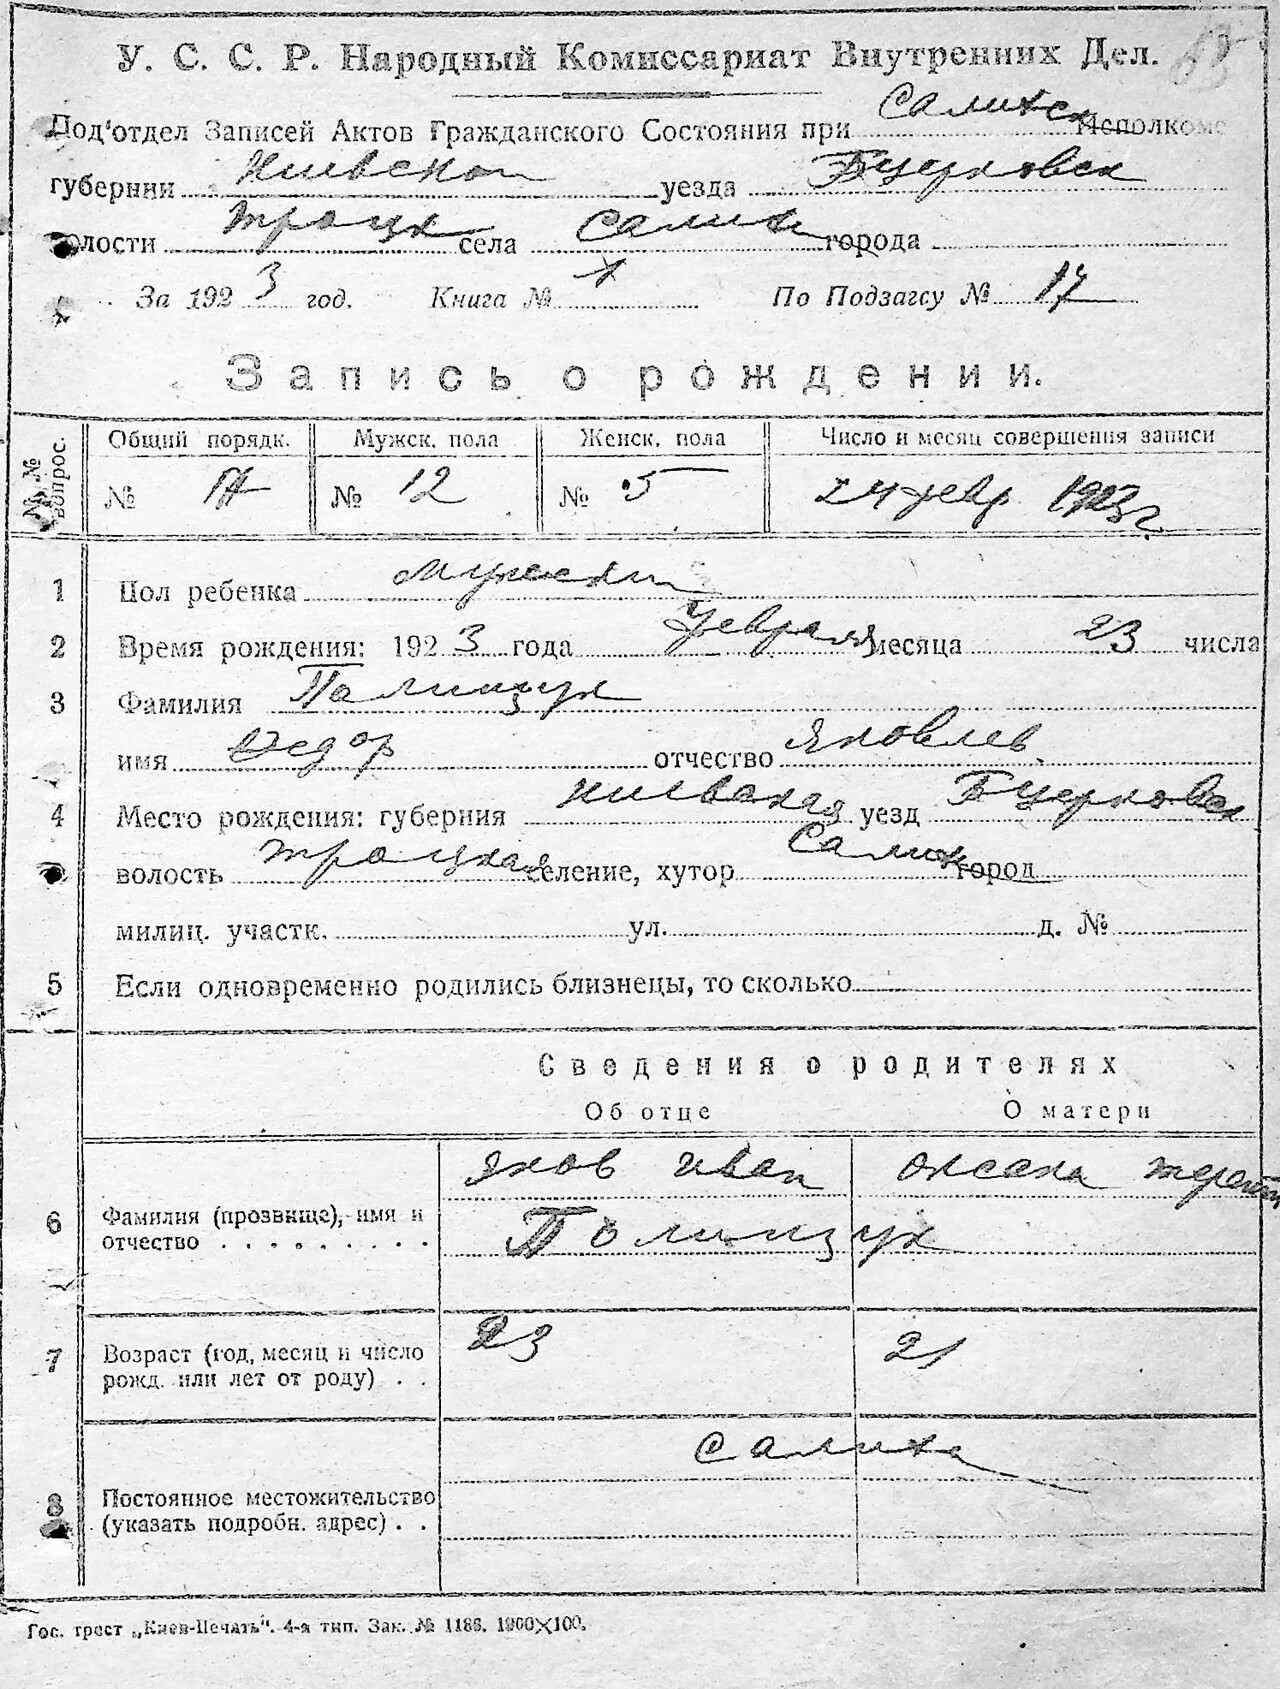 У. С. С. Р. Народный Комиссариат Внутренних Дел.
Под'отдел Записей Актов Гражданского Состояния при Салихск Исполкоме
губернии Киевской уезда Бцерковск
волости Троцк села Салиха города
За 1923 год. Книга № 1 По Подзагсу № 17
Запись о рождении.
№№ вопрос. Общий порядк. Мужск. пола Женск. пола Число и месяц совершения записи
№ 17 № 12 № 5 24 февр 1923 г
1 Пол ребенка Мужской
2 Время рождения: 1923 года Февраля месяца 23 числа
3 Фамилия Полищук
имя Федор отчество Яковлев
4 Место рождения: губерния Киевская уезд Бцерковск
волость Троцкая селение, хутор Салиха город
милиц. участк. ул. д. №
5 Если одновременно родились близнецы, то сколько
Сведения о родителях
Об отце О матери
Яков Иван Оксана Терент
6 Фамилия (прозвище), имя и
отчество . . . . . . . . . Полищук
7 Возраст (год, месяц и число 23 21
рожд. или лет от роду) . .
Салиха
8 Постоянное местожительство
(указать подробн. адрес) . .
Гос. трест „Киев-Печать". 4-я тип. Зак. № 1186. 1900×100.